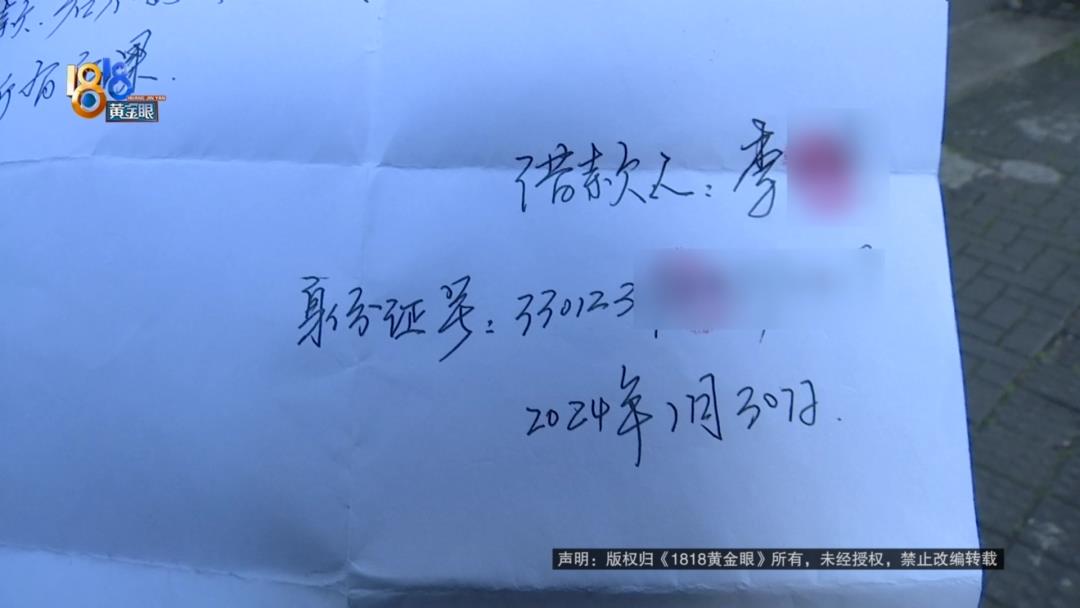 1818
HUANG JIN YAN
黄金眼
借款人：李
身份证号：330123
2024年1月30日.
声明：版权归《1818黄金眼》所有，未经授权，禁止改编转载